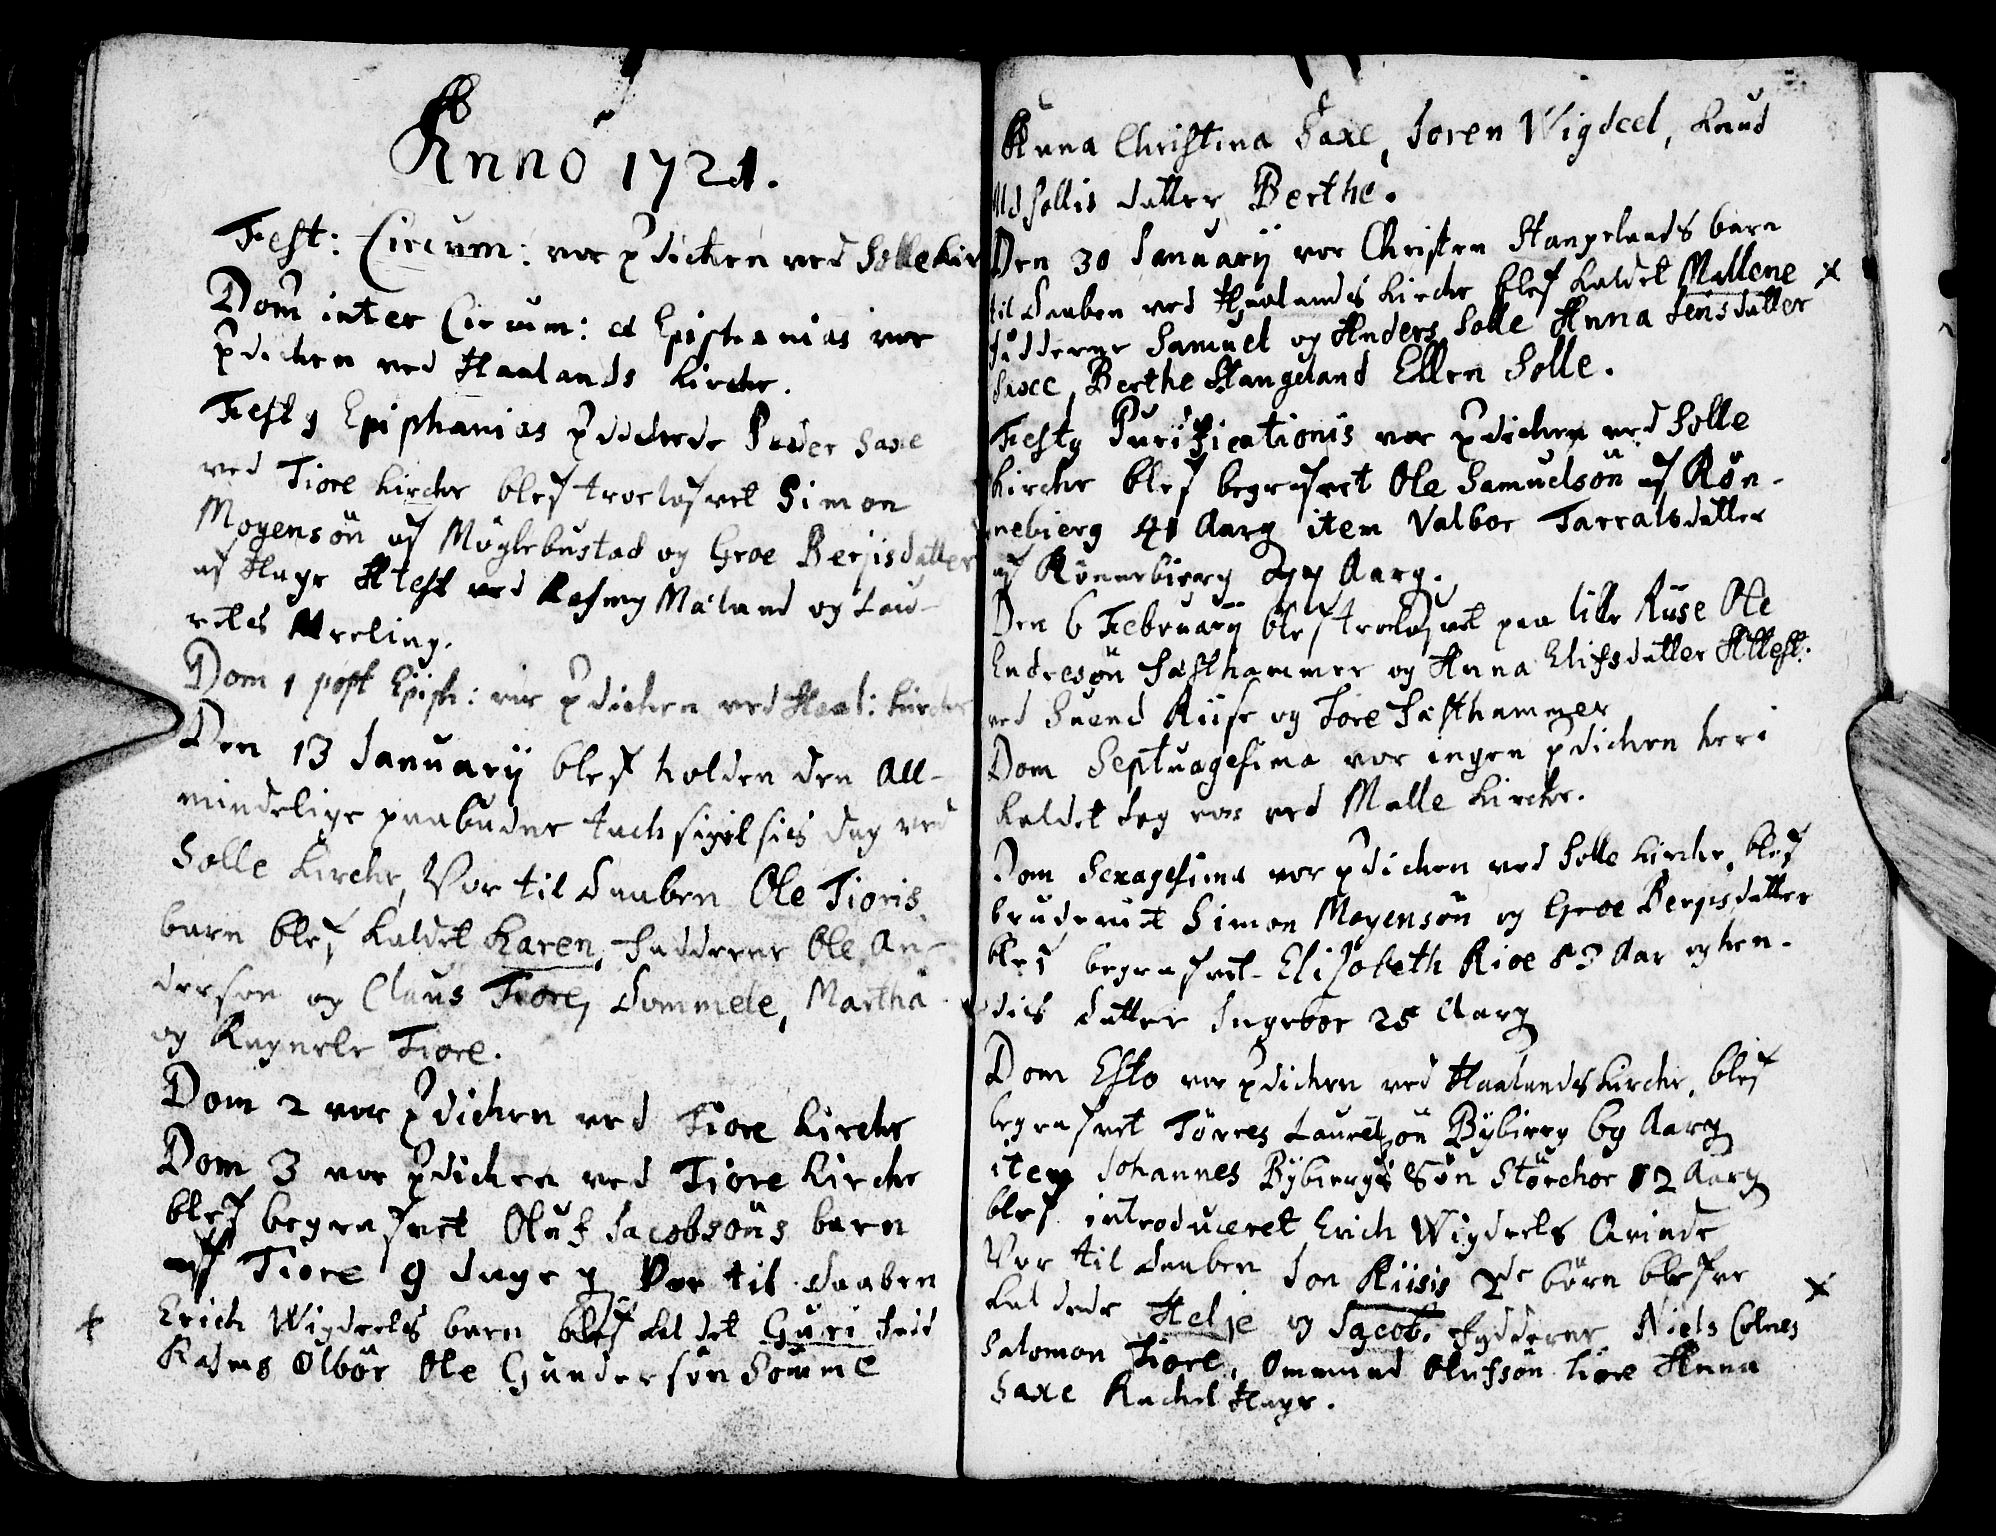 Anno 1721.
Fest: Circum: var prdichen ved Solle Kir
Dom inter Circum: et Epiphanias var
prdichen ved Haalands Kirche.
Festg Epiphanias prdichede Peder Saxe
ved Tiore Kirche blef troelofvet Simon
Mogensön af Möglebustad og Groe Berjisdatter
af Hage Attest ved Rasmg Maland og Lau-
ritis Meeling.
Dom 1 post Epiph: var prdichen ved Haal: Kirche
Den 13 Januarij blef holden den All-
mindelige paabudne tachsigelsis dag ved
Solle Kirche, Var til Daaben Ole Tioris
barn blef kaldet Karen, Fadderne Ole An-
derson og Claus Tiore, Dommele, Martha
og Ragnele Tiore.
Dom 2 var prdichen ved Tiore Kirche
Dom 3 var prdichen ved Tiore Kirche
blef begrafvet Oluf Jacobsöns barn
af Tiore 9 dage g Var til Daaben
Erich Wigdeels barn blef kaldet Guri Fad
Rasms Ölbör Ole Gundersön Somme
Anna Christina Saxe, Soren Wigdeel, Knud
Udsollis datter Berthe.
Den 30 Januarij var Christen Stangelands barn
til Daaben ved Haalands Kirche blef kaldet Mallene
Fadderne Samuel og Anders Solle Anna Jensdatter
Saxe, Berthe Stangeland Ellen Solle.
Festg Purificationis var prdichen ved Solle
Kirche blef begrafvet Ole Samuelsön af Rön-
nebierg 41 Aarg item Valbor Tarralsdatter
af Rönnebierg Aarg.
Den 6 Februarij blef troelofvet paa lille Ruse Ole
Endresön Fasthammer og Anna Elifsdatter Attest.
ved Suend Riise og Tore Fasthammer
Dom Septuagesima var ingen prdichen her i
Kaldet Jeg var ved Malle Kirche.
Dom Sexagesima var prdichen ved Solle Kirche, blef
brudeviet Simon Mogensön og Groe Berjisdatter
blef begrafvet Elisabeth Rioe 83 Aar og hen-
dis datter Ingebor 25 Aarg
Dom Esto var prdichen ved Haalands Kirche, blef
begrafvet Törres Lauritsön Bybierg 69 Aarg
item Johannes Bybiergs Sön Storchor 12 Aarg
blef introduceret Erich Wigdeels Qvinde
Var til Daaben Jon Riisis 2de börn blefve
kaldede Helje og Jacob. Fadderne Niels Colnes
Salomon Tiore, Ommund Olufsön Tiore Anna
Saxe Rachel Hage.